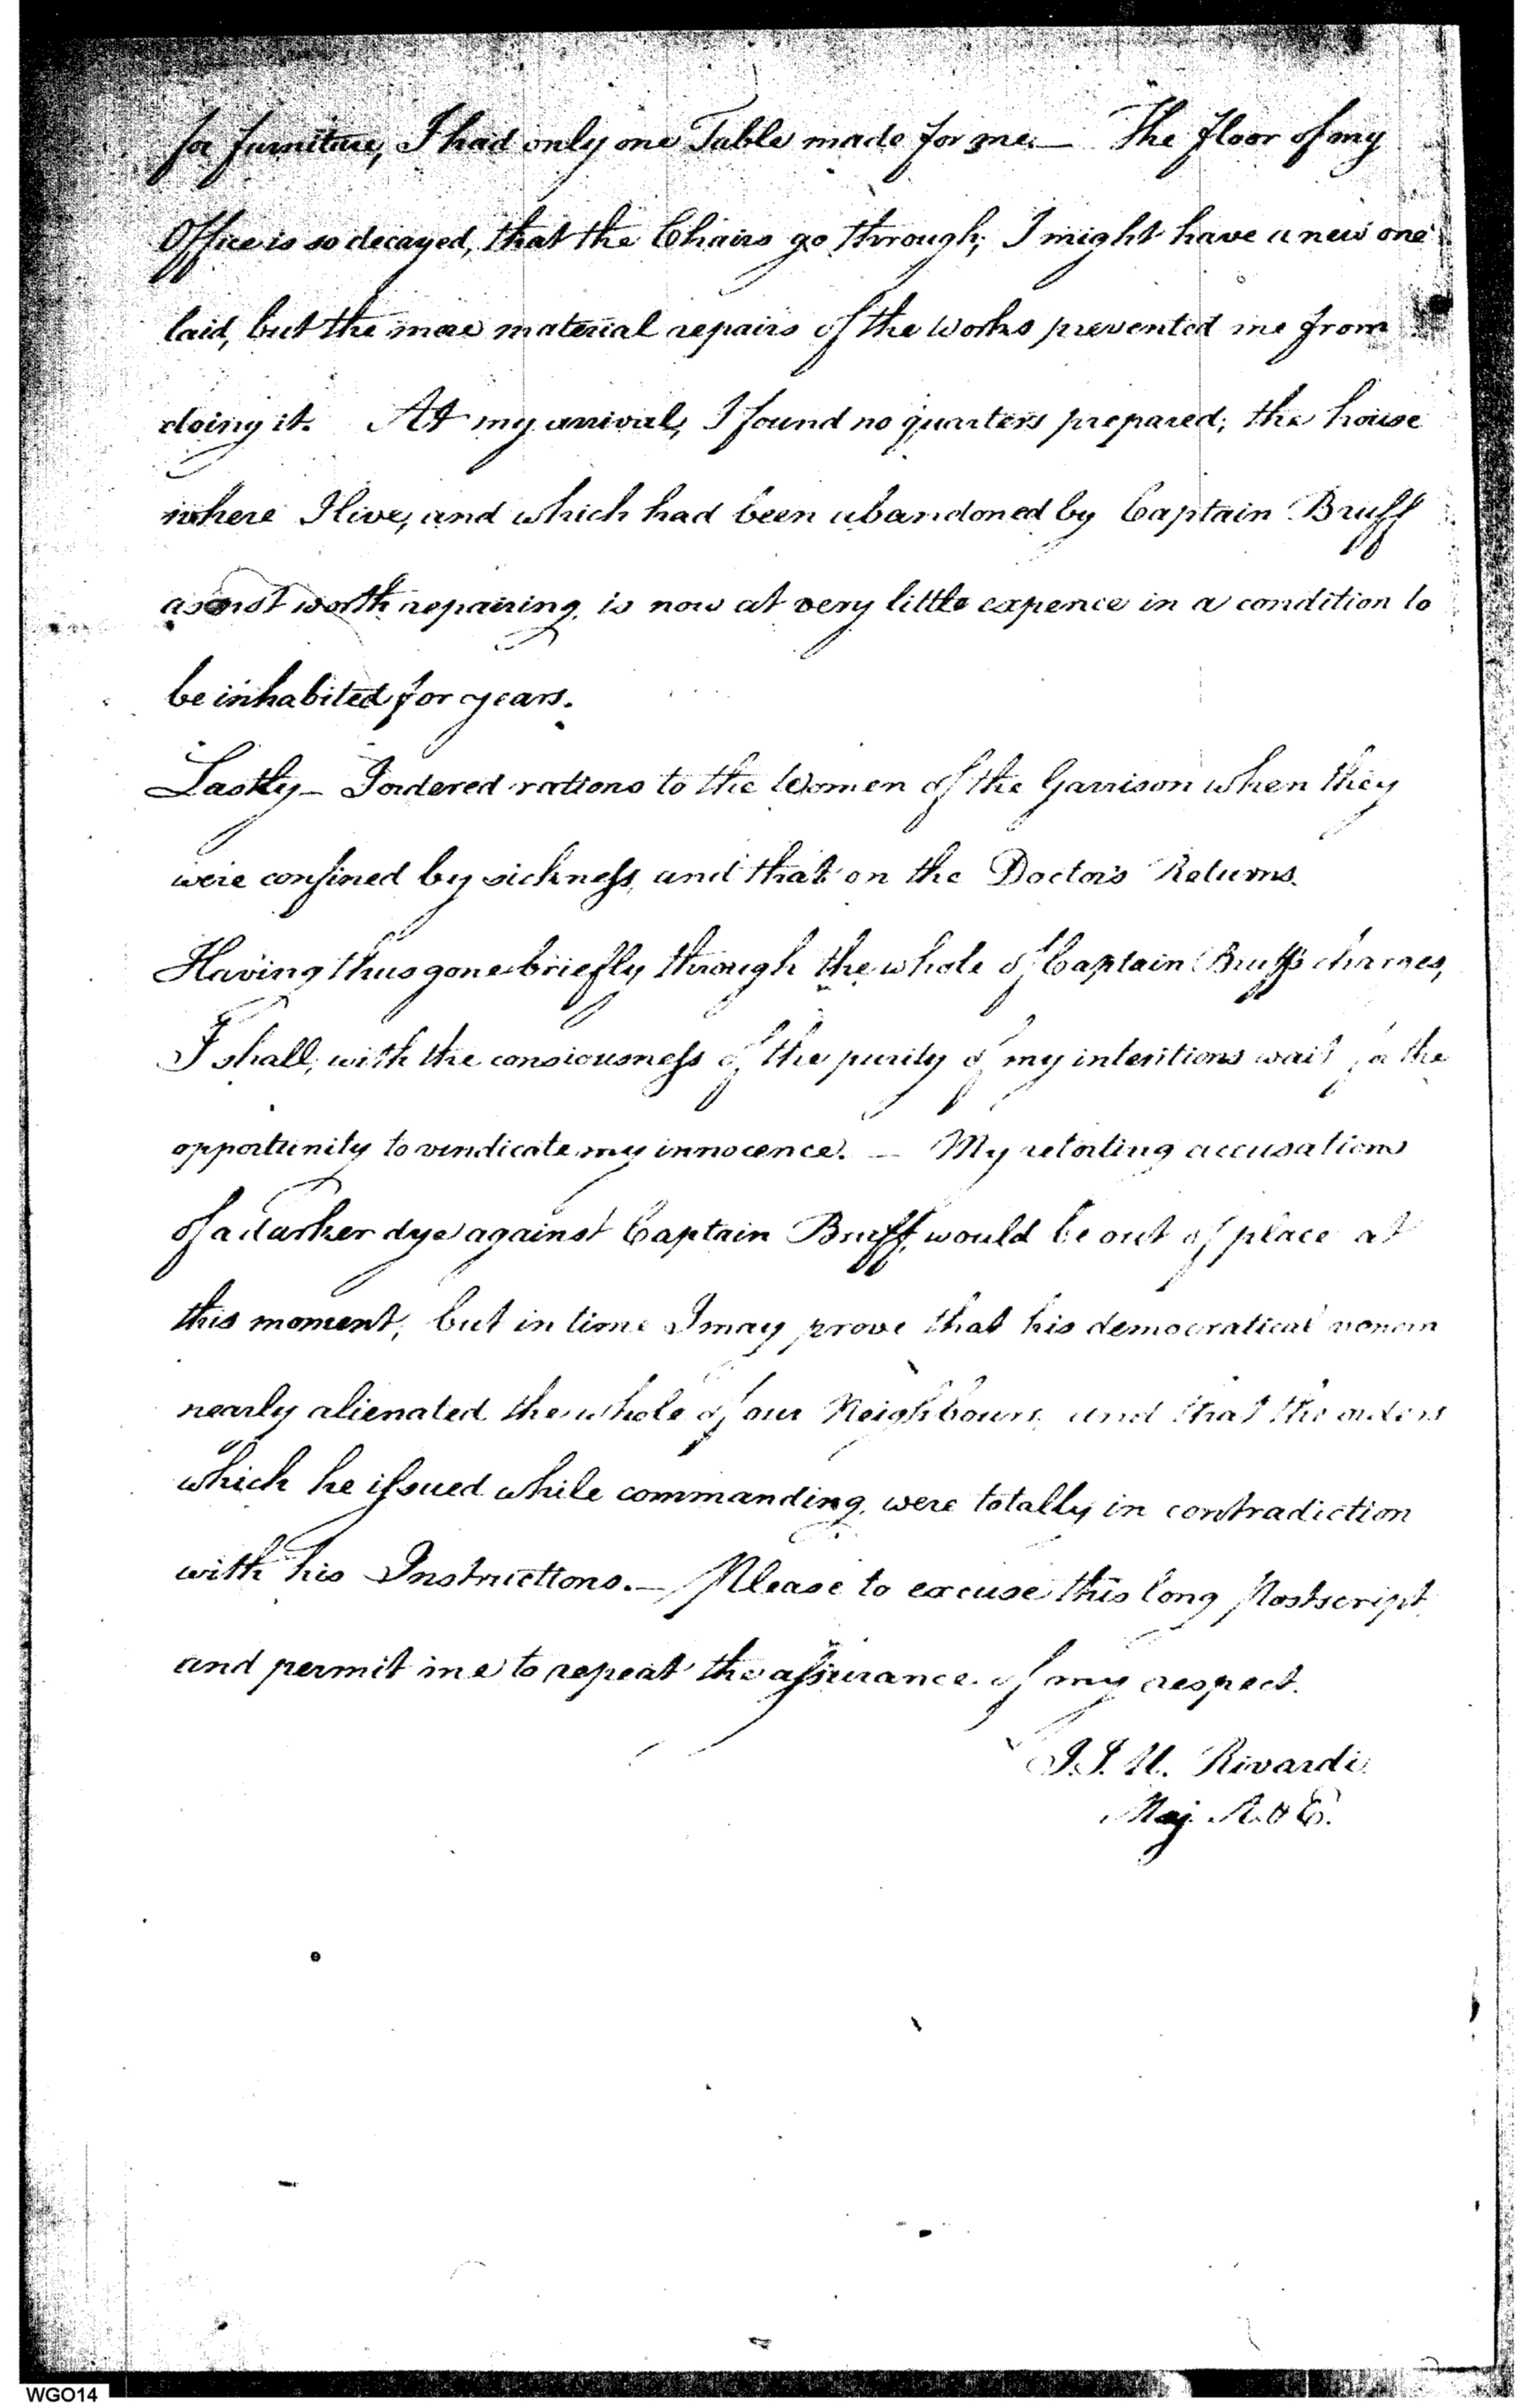 for furniture, I had only one Table made for me. — The floor of my
Office is so decayed, that the Chairs go through; I might have a new one
laid, but the more material repairs of the Works prevented me from
doing it. At my arrival, I found no quarters prepared; the house
where I live, and which had been abandoned by Captain Bruff
as not worth repairing, is now at very little expence in a condition to
be inhabited for years.
Lastly — I ordered rations to the Women of the Garrison when they
were confined by sickness, and that on the Doctors Returns.
Having thus gone briefly through the whole of Captain Bruffs charges,
I shall, with the consiousness of the purity of my intentions wait for the
opportunity to vindicate my innocence. — My retorting accusations
of a darker dye against Captain Bruff, would be out of place at
this moment, but in time I may prove that his democratical venom
nearly alienated the whole of our Neighbours, and that the orders
which he issued while commanding, were totally in contradiction
with his Instructions. — Please to excuse this long Postscript,
and permit me to repeat the assurance of my respect.
J.J. U. Rivardi
Maj. A. & E.
WGO14